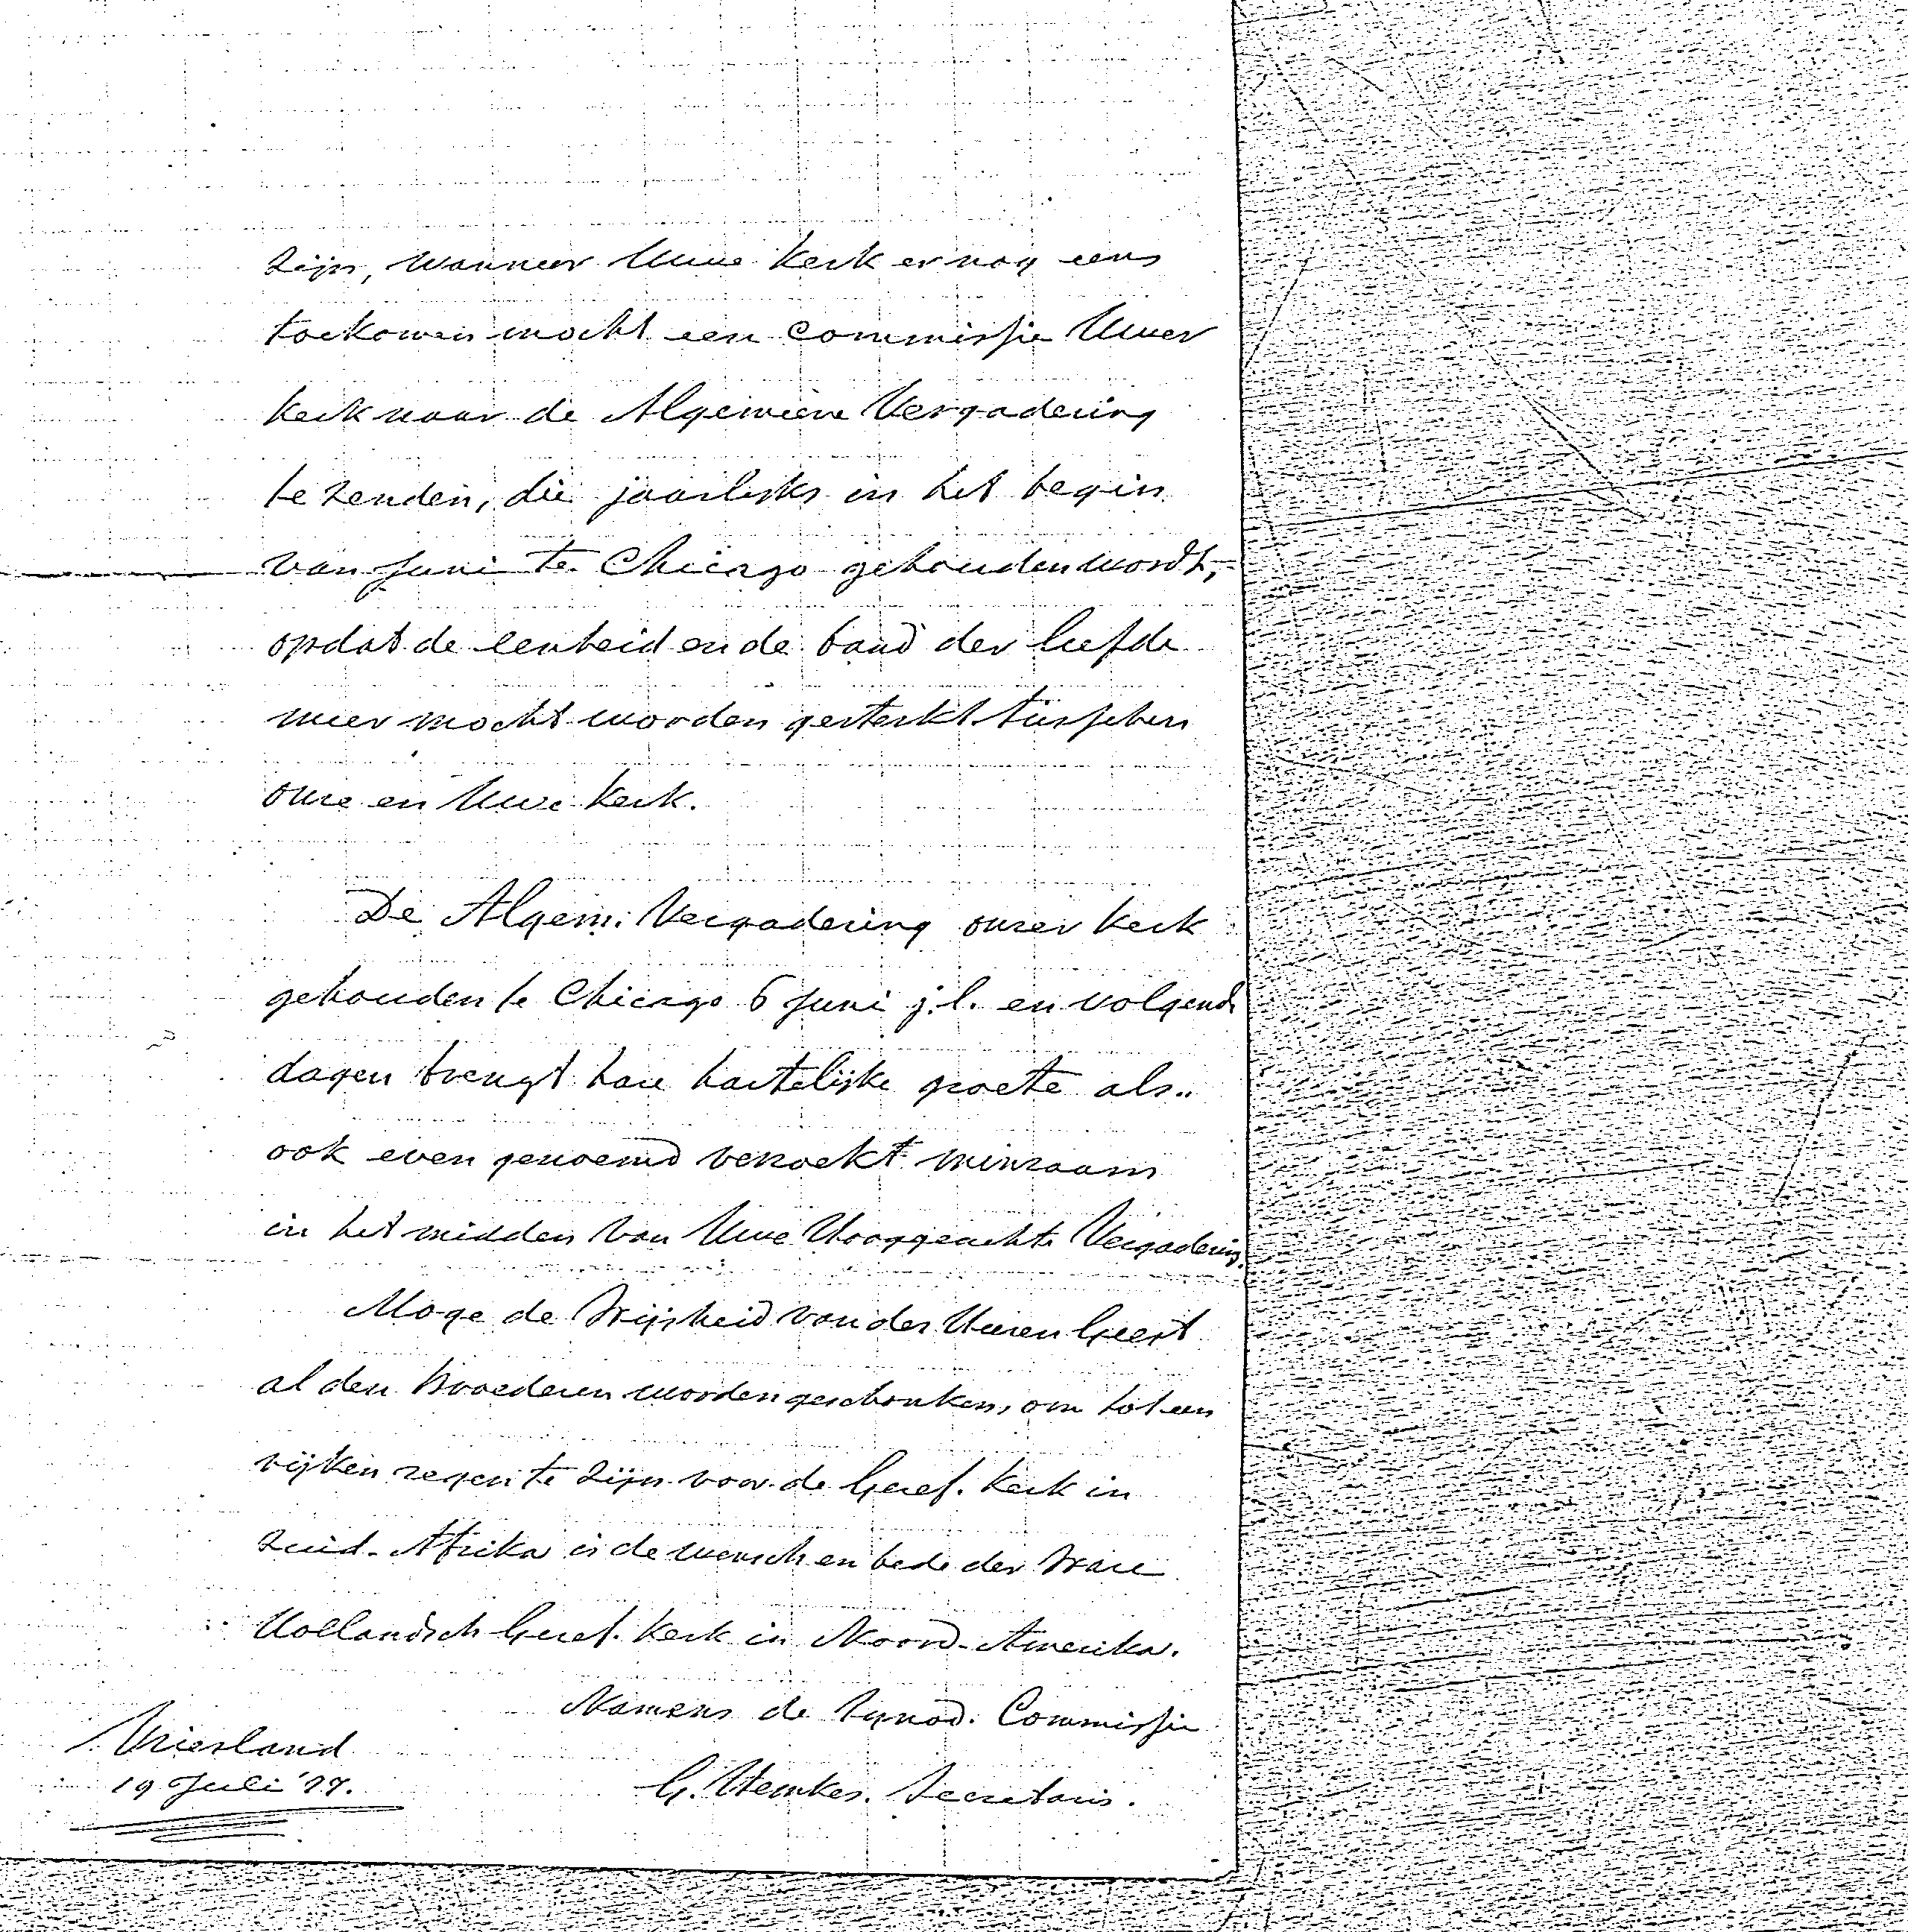 zijn, wanneer Uwe Kerk er nog eens
toekomen mocht een Commissie Uwer
Kerk naar de Algemeene Vergadering
te zenden, die jaarlijks in het begin
van Juni te Chicago gehouden wordt,
opdat de eenheid en de band der liefde
meer mocht worden gesterkt tusschen
onze en Uwe Kerk.
De Algem. Vergadering onzer Kerk
gehouden te Chicago 6 Juni j.l. en volgend
dagen brengt hare hartelijke groete als..
ook even genoemd verzoekt minzaam
in het midden van Uwe Hooggeachte Vergadering.
Moge de Wijsheid van des Heeren Geest
al den Broederen worden geschonken, om tot een
rijken zegen te zijn voor de Geref. Kerk in
Zuid-Afrika is de wensch en bede der Ware
Hollandsch Geref. Kerk in Noord-Amerika.
Namens de Synod. Commissie
Vriesland
19 Juli '77.
G. Hemkes. Secretaris.